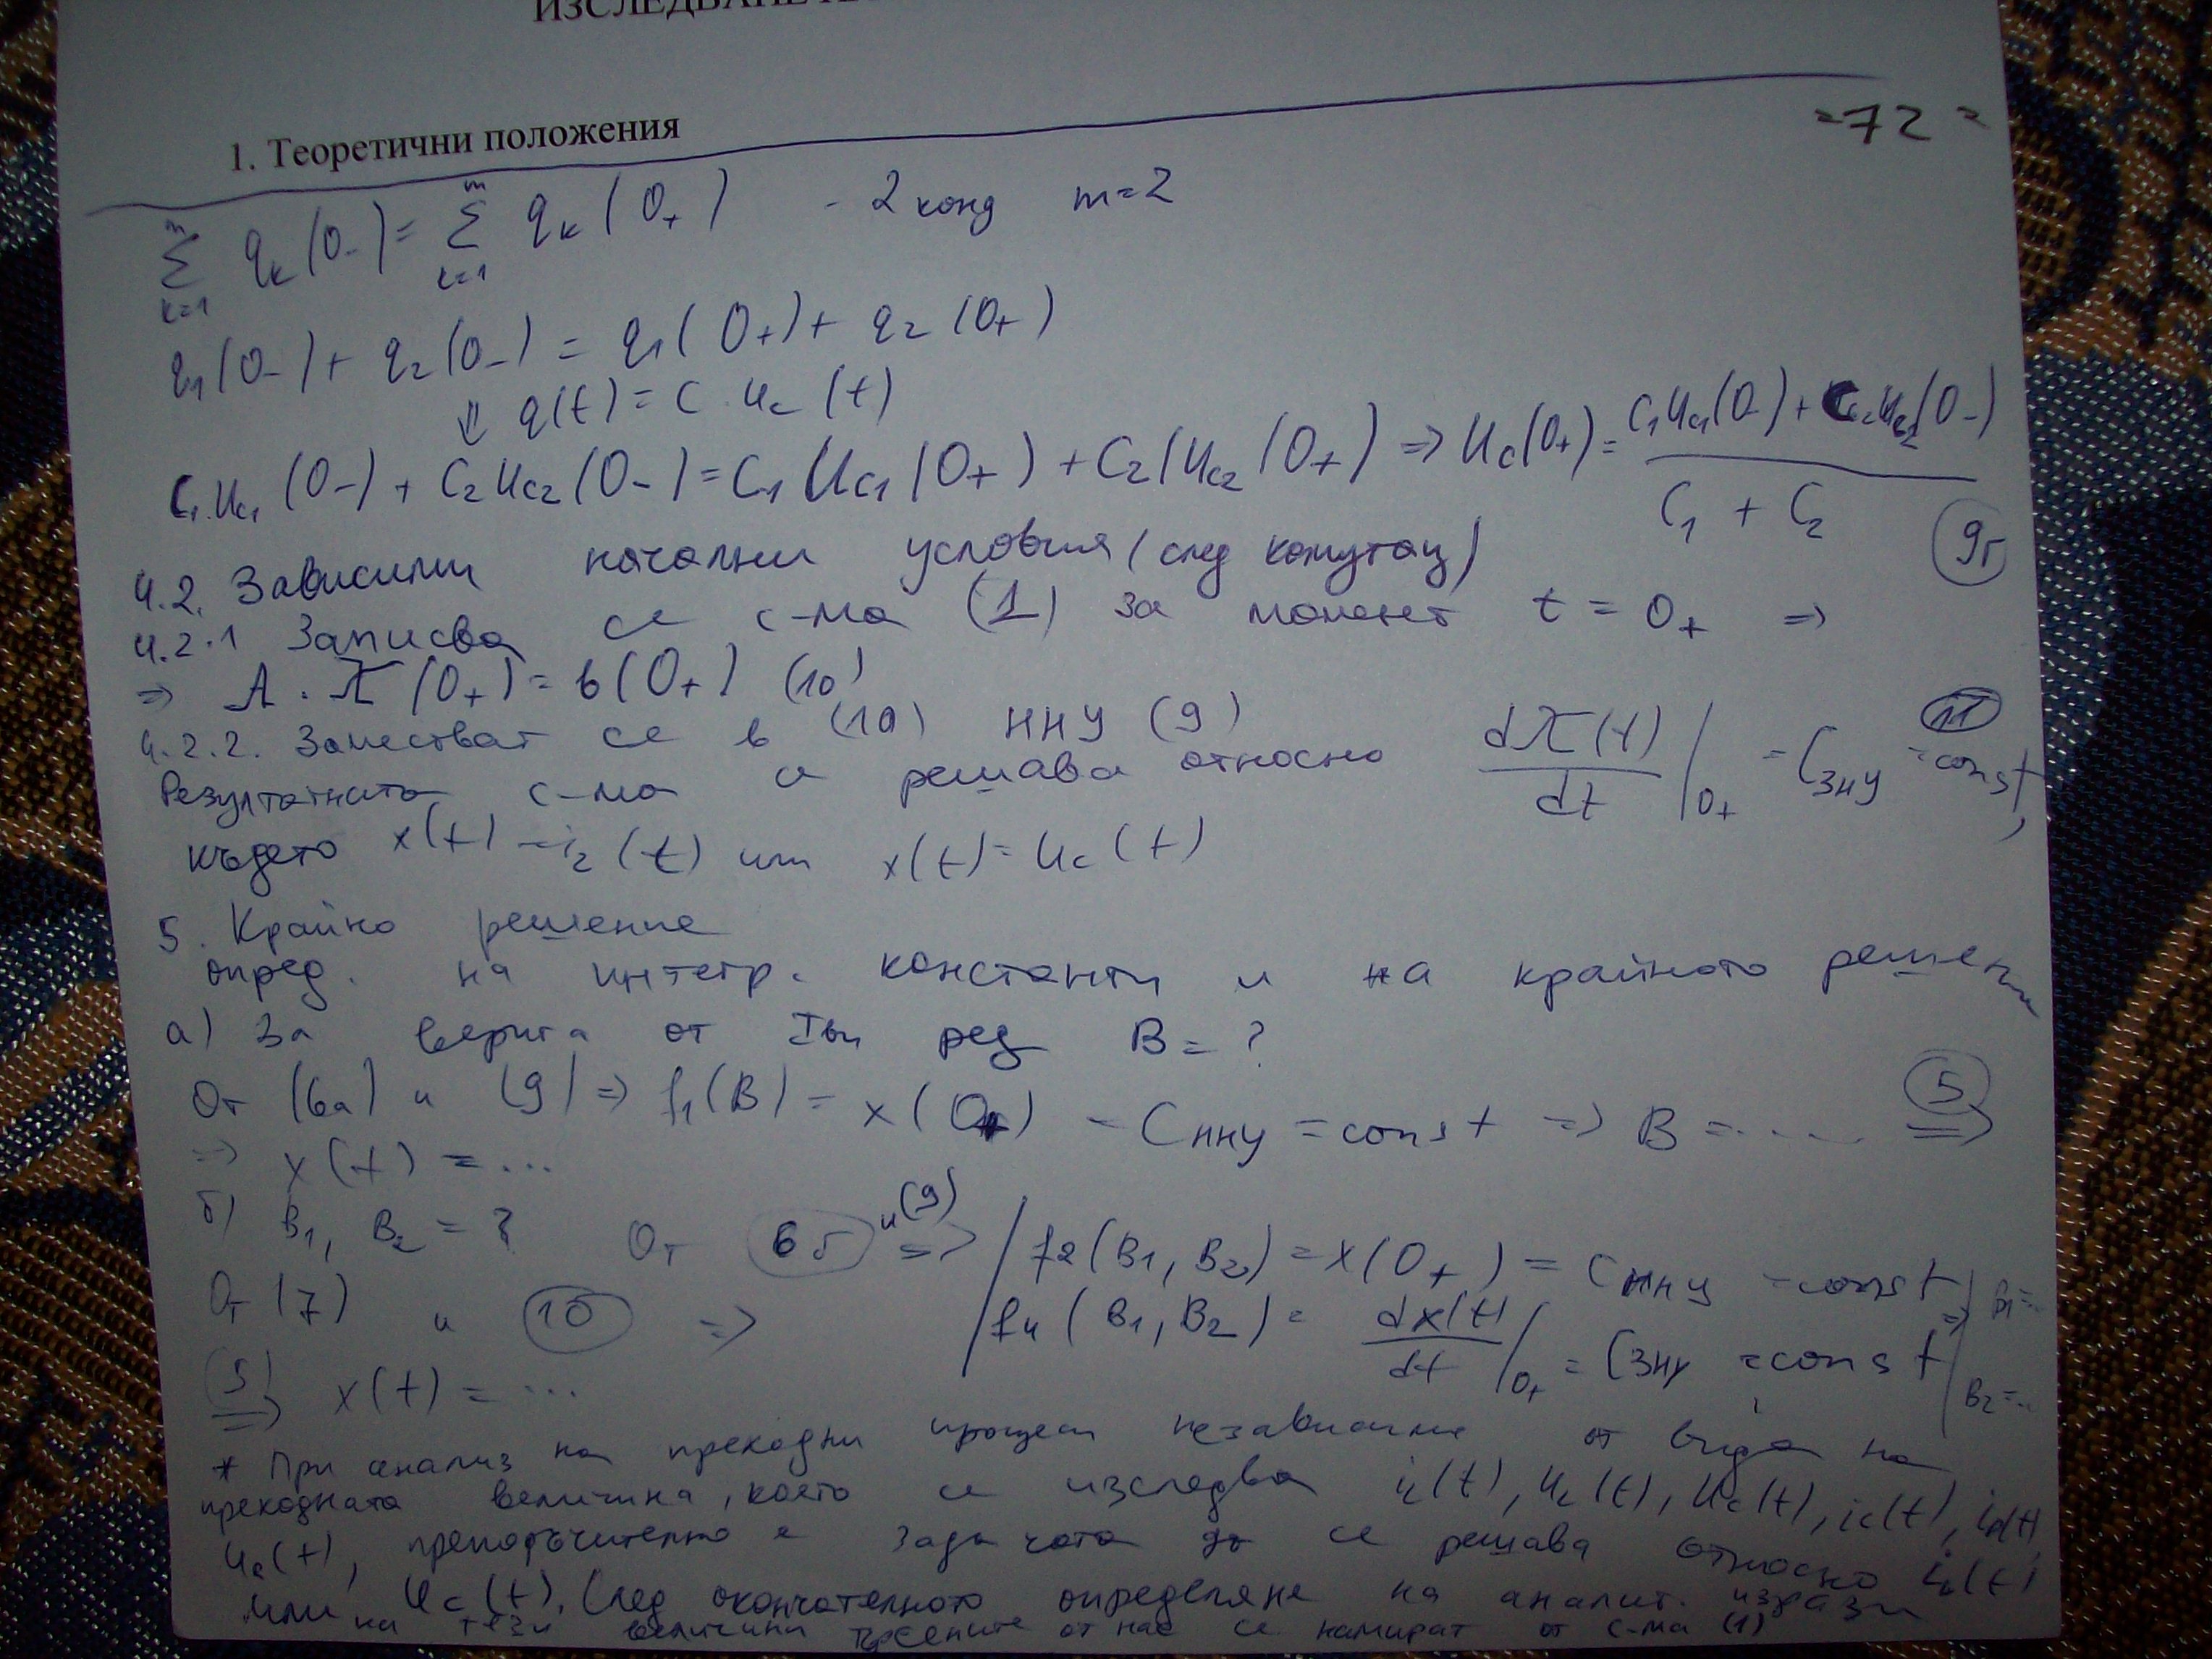 1. Теоретични положения
=72=
m m
∑ qк(0-) = ∑ qк(0+) - 2 конд m=2
к=1 к=1
q1(0-) + q2(0-) = q1(0+) + q2(0+)
⇓ q(t) = C . Uc(t)
C1.Uc1(0-) + C2Uc2(0-) = C1Uc1(0+) + C2(Uc2(0+) => Uc(0+) = C1Uc1(0-) + C2Uc2(0-) / C1 + C2
9г
4.2. Зависими начални условия (след комутац)
4.2.1 Записва се с-ма (1) за момент t = 0+ =>
=> A . X(0+) = b(0+) (10)
4.2.2. Заместват се в (10) ННУ (9)
Резултатната с-ма се решава относно dX(t)/dt |0+ = Cзну =const, (11)
където x(t) = iL(t) или x(t) = Uc(t)
5. Крайно решение
опред. на интегр. константи и на крайното решени
а) За верига от Iви ред B = ?
От (6а) и (9) => f1(B) = x(0+) - Cнну = const => B = ..... (5) =>
=> x(t) = ...
б) B1, B2 = ? От 6б и (9) => f2(B1, B2) = x(0+) = Cнну = const => B1=..
От (7) и 10 => f4(B1, B2) = dx(t)/dt |0+ = Cзну = const B2=..
(5) => x(t) = ...
* При анализ на преходни процеси независимо от вида на
преходната величина, която се изследва iL(t), UL(t), Uc(t), ic(t), iR(t)
UR(t), препоръчително е задачата да се решава относно iL(t)
или Uc(t). След окончателното определяне на аналит. изрази
на тези величини търсените от нас се намират от с-ма (1)